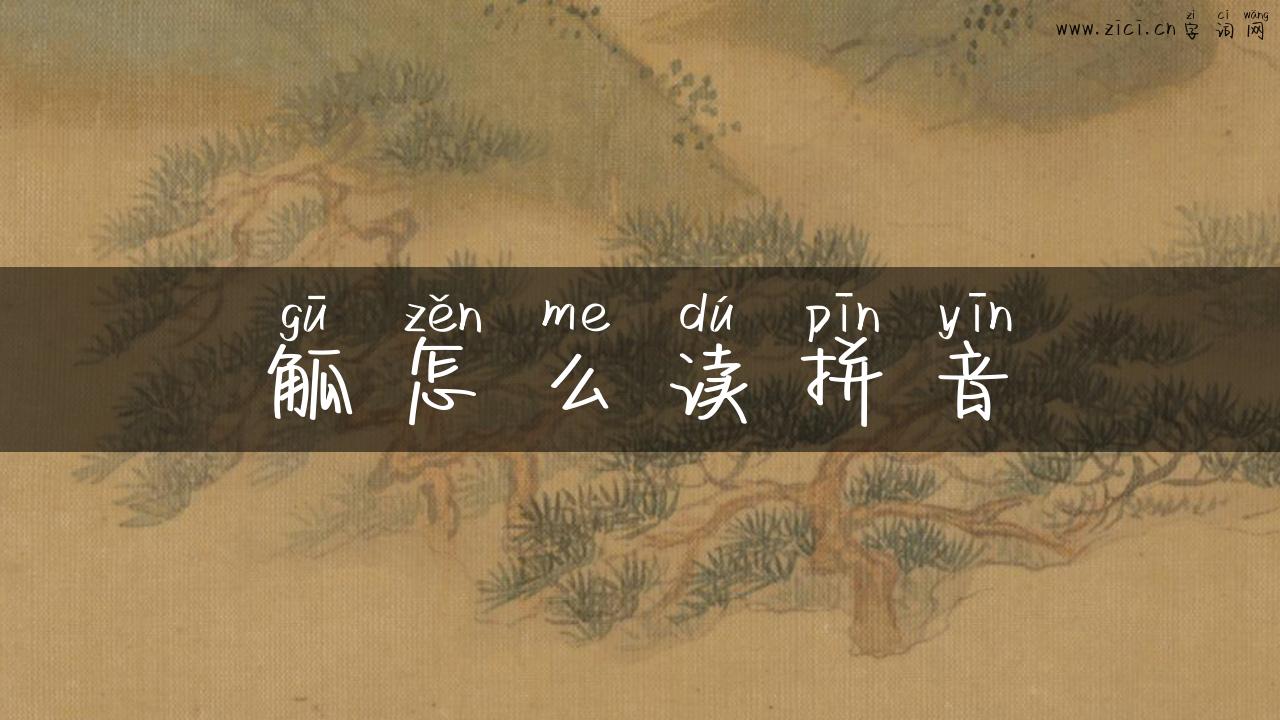 zì cí wǎng
www.zici.cn 字词网
gū zěn me dú pīn yīn
觚怎么读拼音